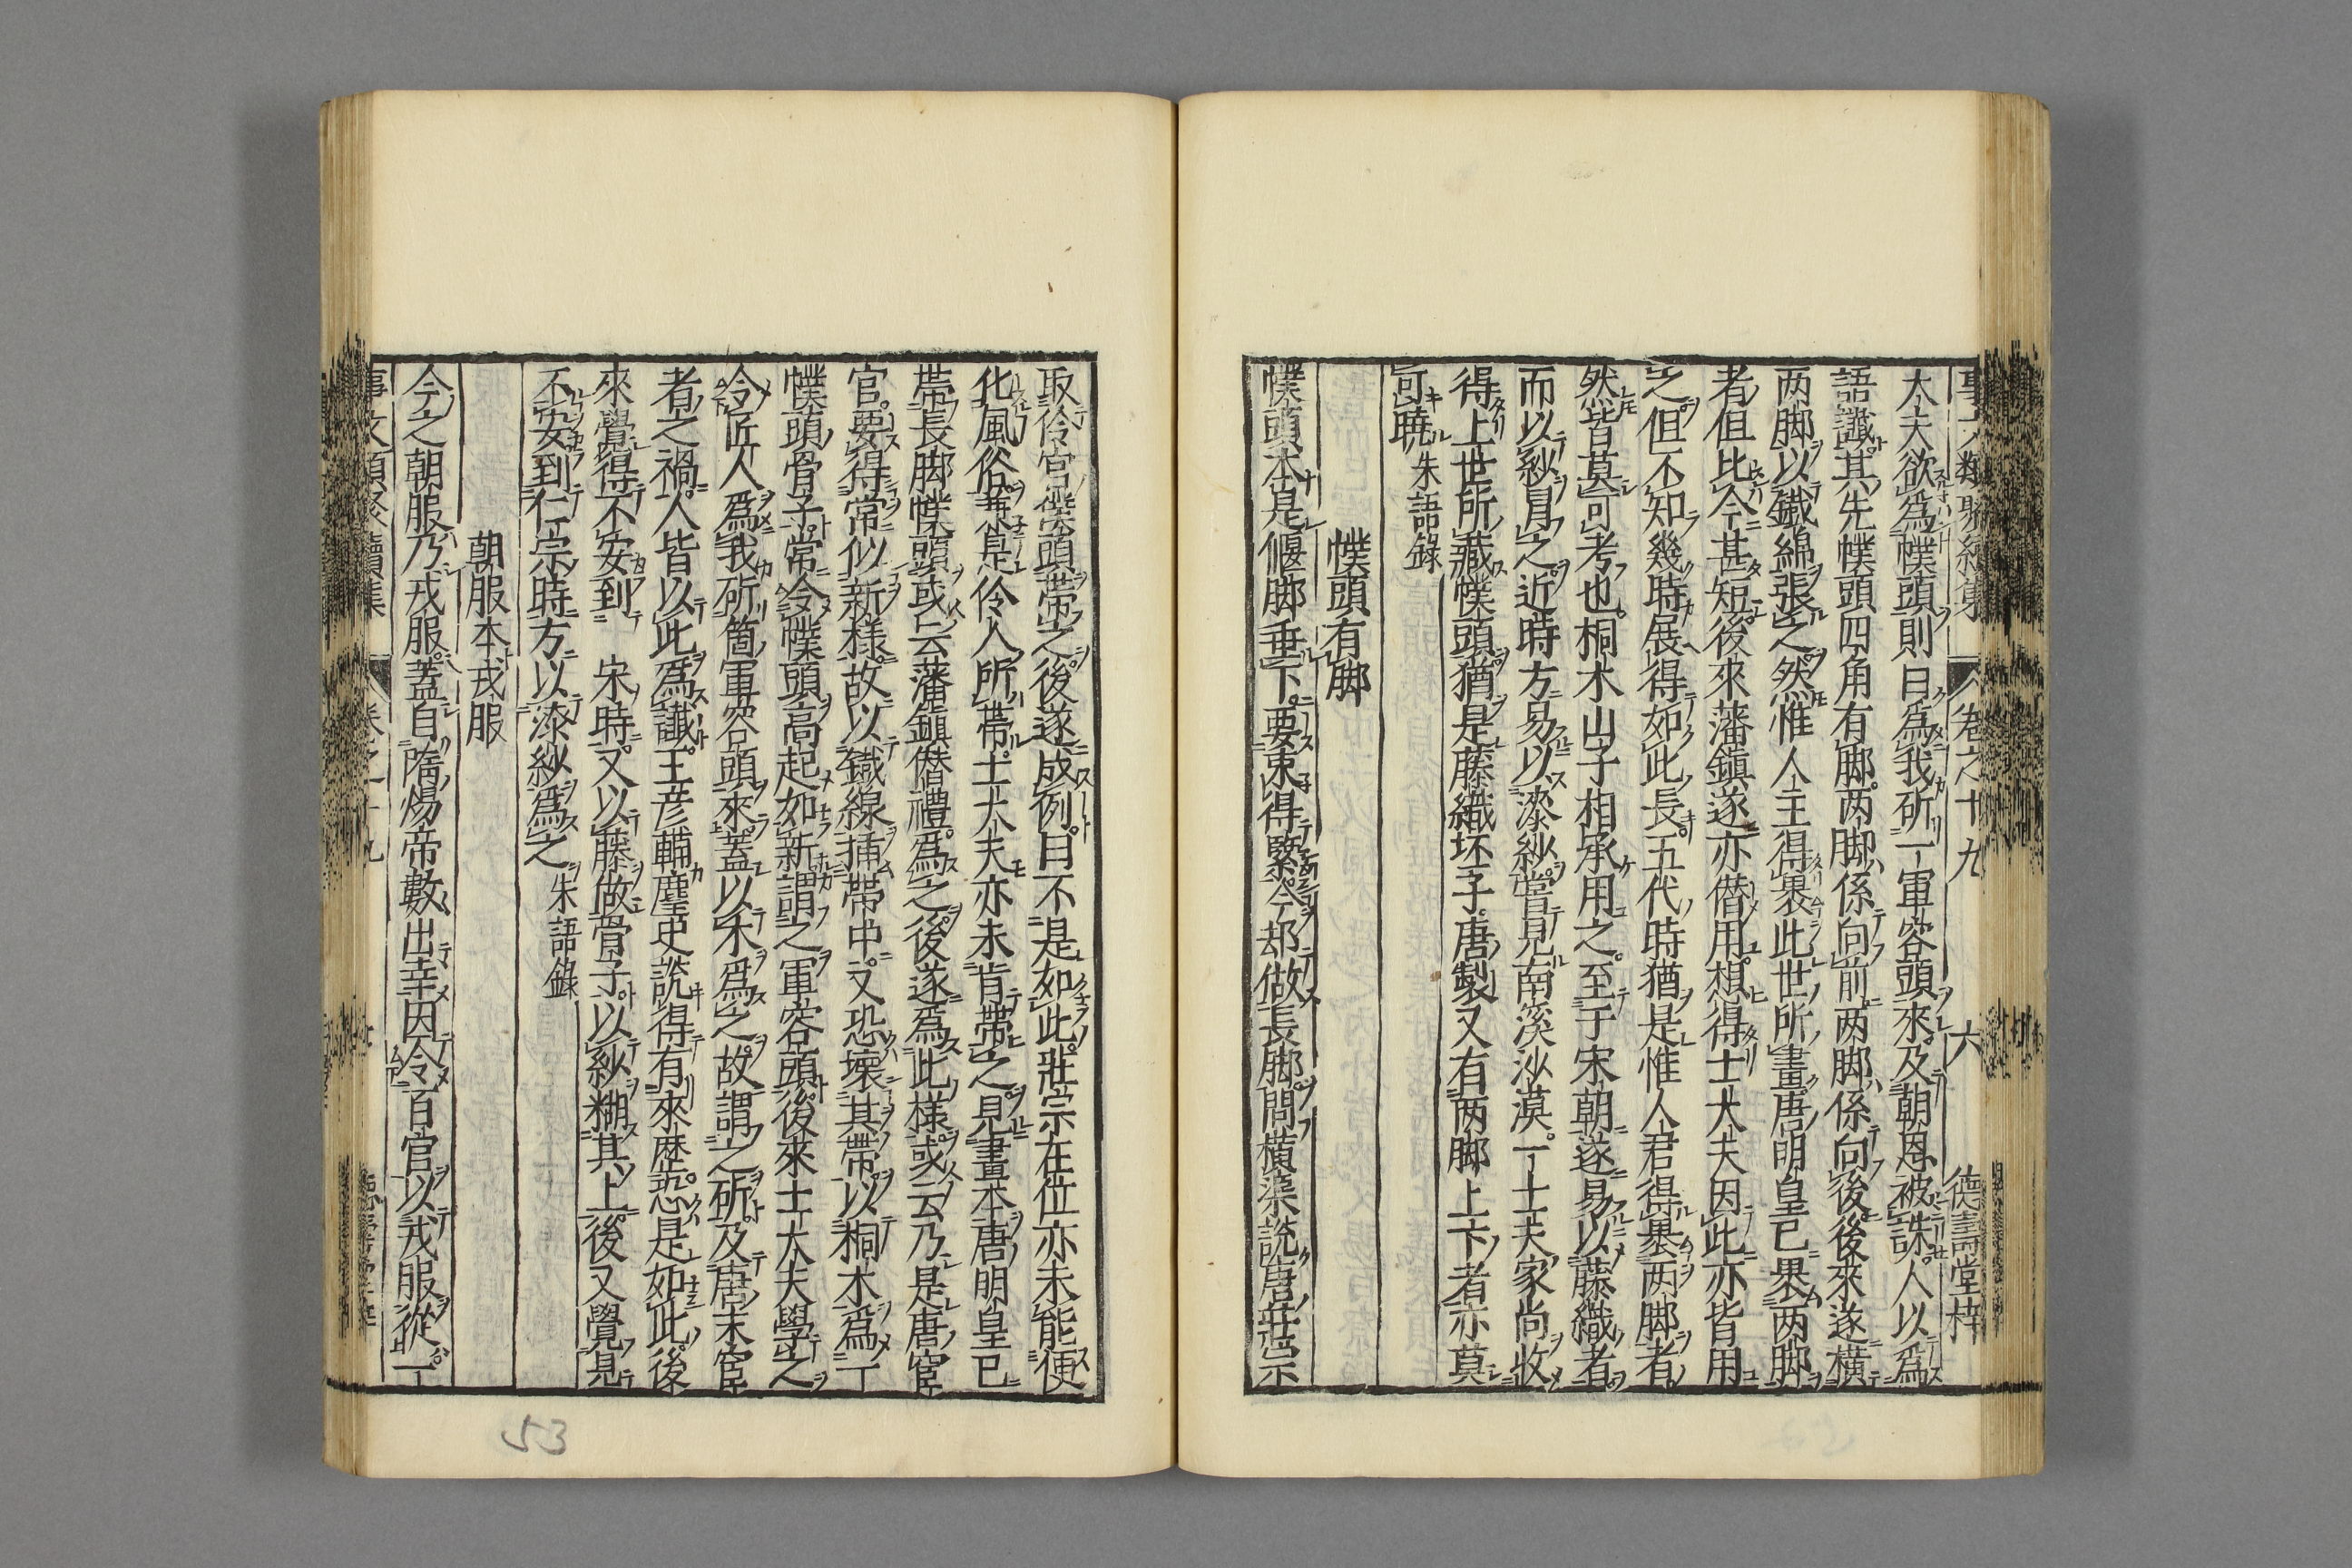 事文類聚續集 卷之十九 六 德壽堂梓
大夫欲爲幞頭則曰爲我斫一軍容頭來及朝恩被誅人以爲
語讖其先幞頭四角有脚两脚係向前两脚係向後後來遂橫
两脚以鐵線張之然惟人主得裹此世所畫唐明皇已裹两脚
者但比今甚短後來藩鎮遂亦僣用想得士大夫因此亦皆用
之但不知幾時展得如此長五代時猶是惟人君得裹两脚者
然皆莫可考也桐木山子相承用之至于宋朝遂易以藤織者
而以紗冐之近時方易以漆紗嘗見南溪沙漠一士夫家尚收
得上世所藏幞頭猶是藤織坯子唐製又有两脚上下者亦莫
可曉 朱語錄
幞頭有脚
幞頭本是偃脚垂下要束得緊今却做長脚問橫渠說唐莊宗
取伶官幞頭帶之後遂成例曰不是如此莊宗在位亦未能便
化風俗兼是伶人所帶士大夫亦未肯帶之見畫本唐明皇已
帶長脚幞頭或云藩鎮僣禮爲之後遂爲此樣或云乃是唐宦
官要得常似新樣故以鐵線揷帶中又恐壞其帶以桐木爲一
幞頭骨子常令幞頭高起如新謂之軍容頭後來士大夫學之
令匠人爲我斫箇軍容頭來蓋以木爲之故謂之斫及唐末宦
者之禍人皆以此爲讖王彦輔麈史說得有來歴恐是如此後
來覺得不安到 宋時又以藤做骨子以紗糊其上後又覺見
不安到仁宗時方以漆紗爲之 朱語錄
朝服本戎服
今之朝服乃戎服蓋自隋煬帝數出幸因令百官以戎服從一
事文類聚續集 卷之十九
53